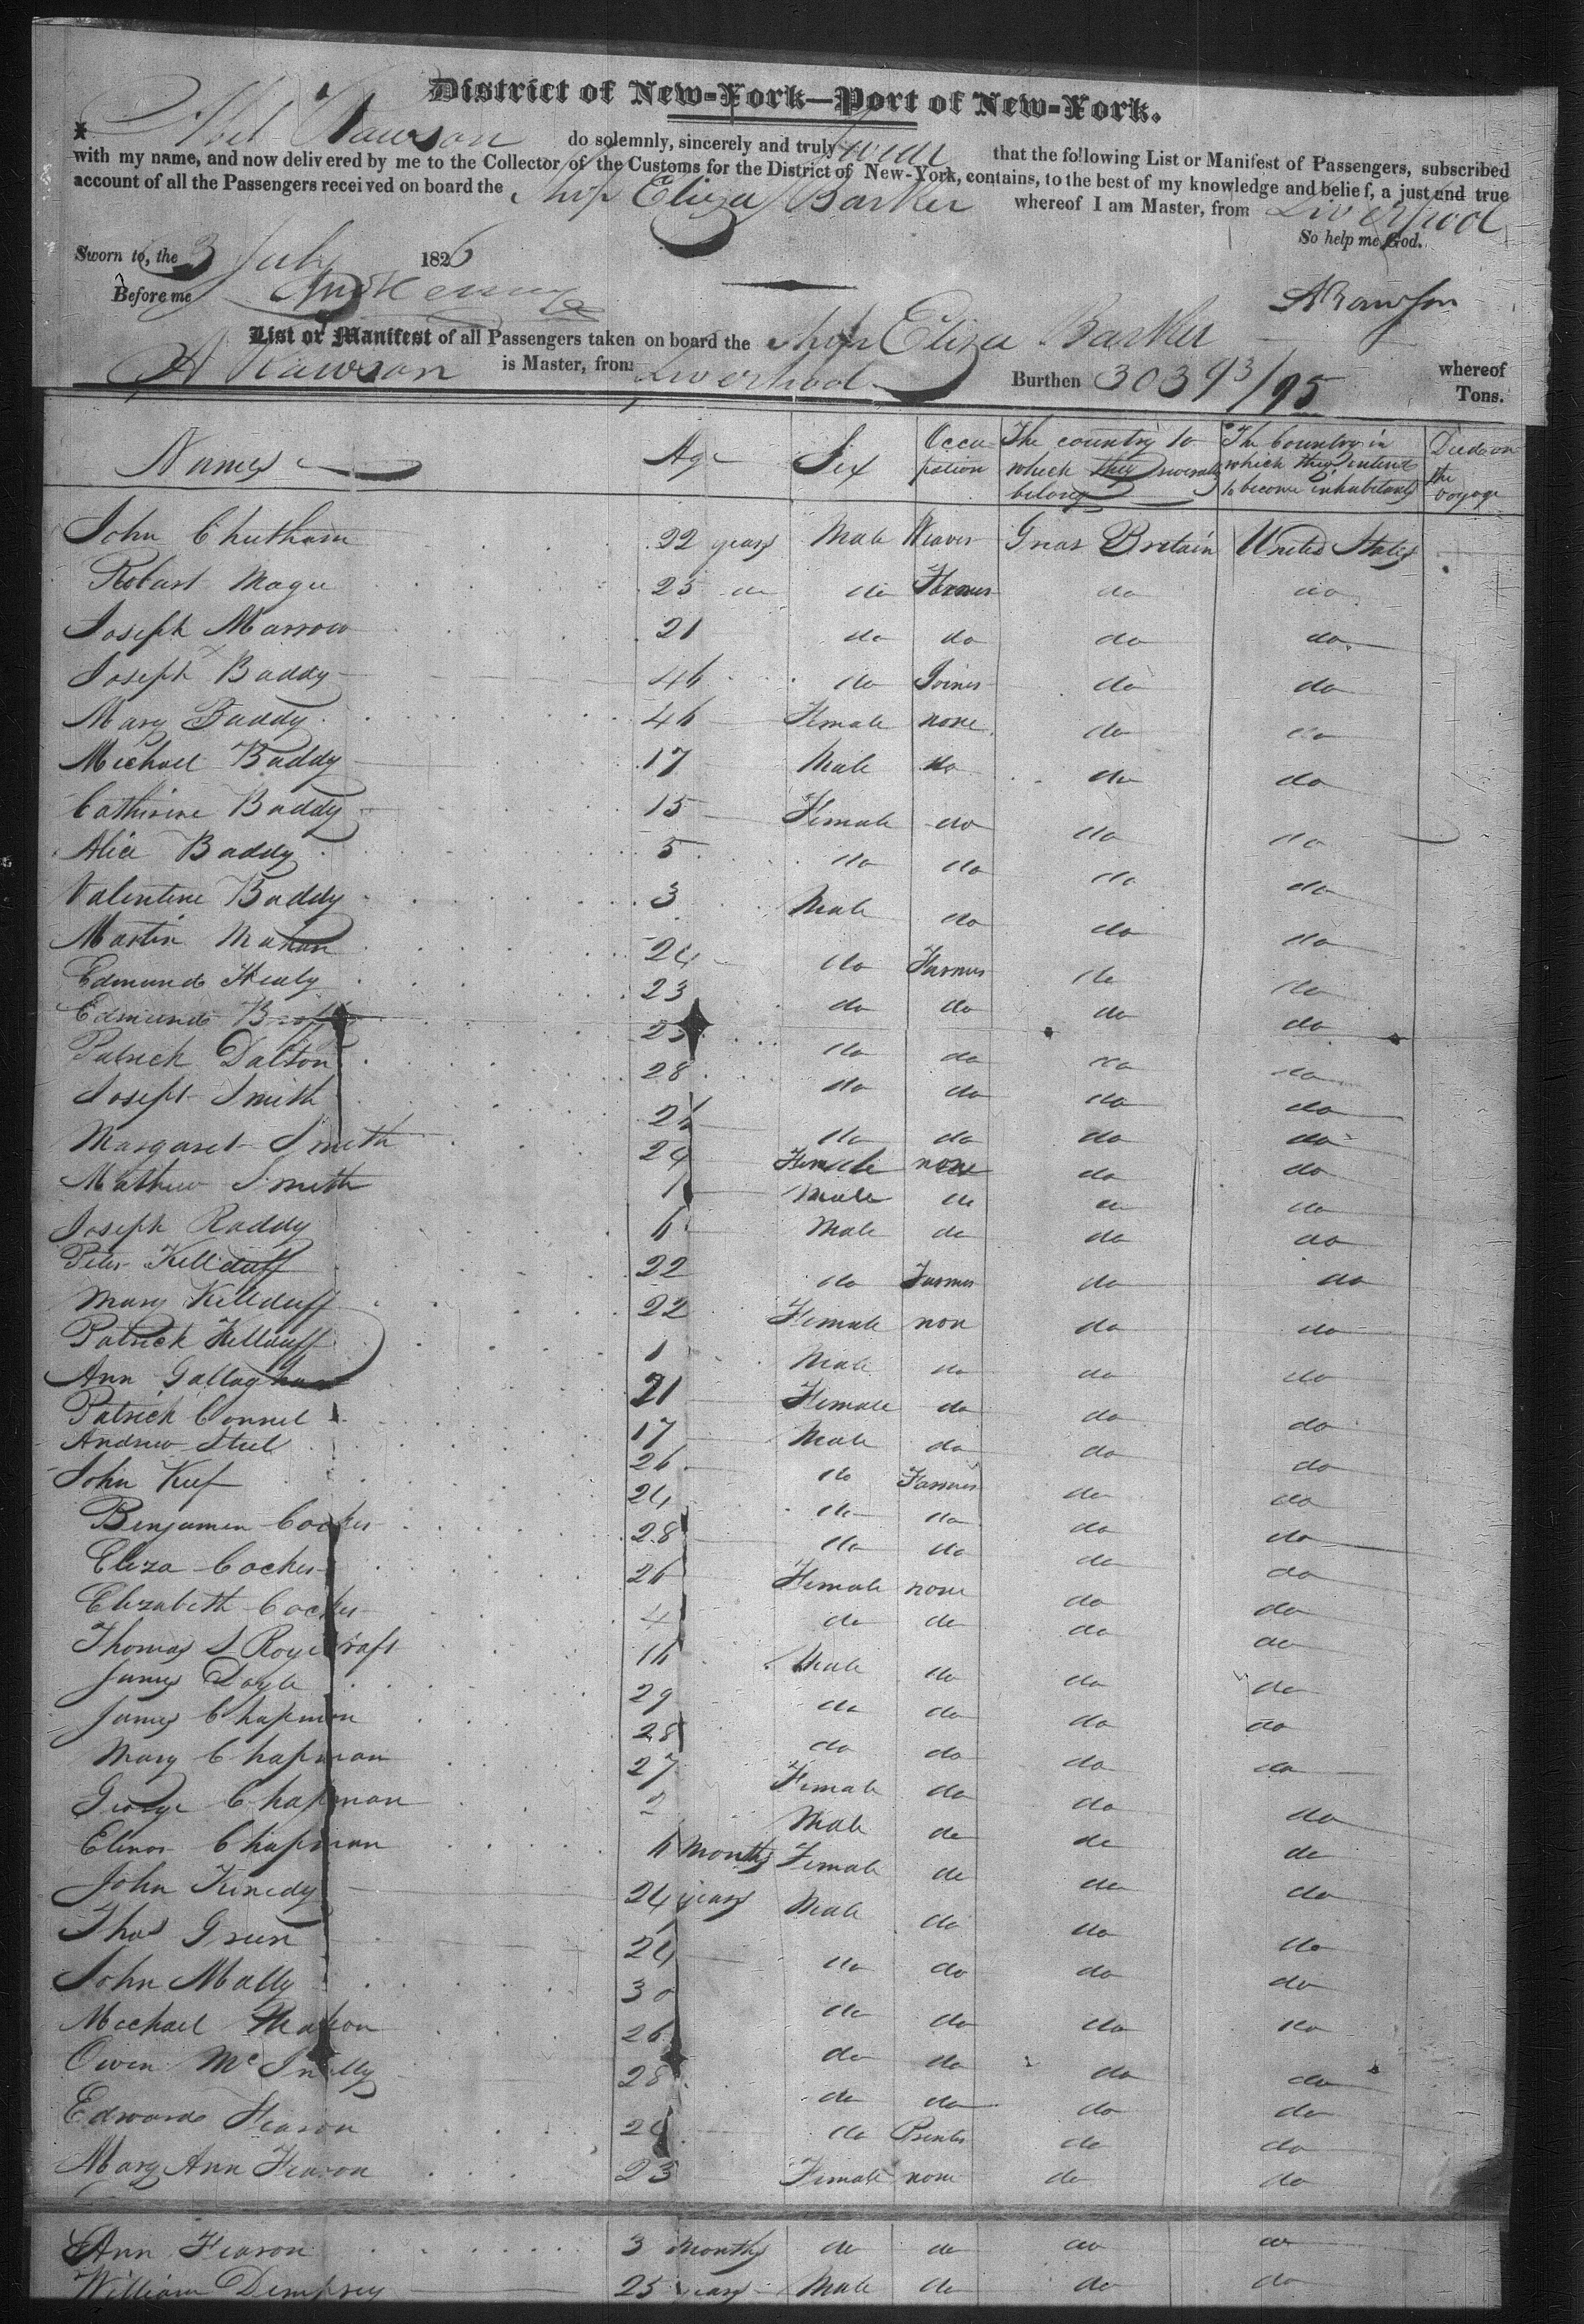 District of New-York—Port of New-York.
I Abel Rawson do solemnly, sincerely and truly Swear that the following List or Manifest of Passengers, subscribed
with my name, and now delivered by me to the Collector of the Customs for the District of New-York, contains, to the best of my knowledge and belief, a just and true
account of all the Passengers received on board the Ship Eliza Barker whereof I am Master, from Liverpool
So help me God.
Sworn to, the 3 July 1826
Before me
A Rawson
List or Manifest of all Passengers taken on board the Ship Eliza Barker whereof
A Rawson is Master, from Liverpool Burthen 303 93/95 Tons.
Names Age Sex Occupation The country to which they severally belong The Country in which they intend to become inhabitants Died on the voyage
John Cheetham 22 years Male Weaver Great Britain United States
Robert Magee 25 do do Farmer do do
Joseph Marrow 21 do do do do
Joseph Baddy 46 do Joiner do do
Mary Baddy 46 Female none do do
Michael Baddy 17 Male do do do
Catherine Baddy 15 Female do do do
Alice Baddy 5 do do do do
Valentine Baddy 3 Male do do do
Martin Mahan 24 do Farmer do do
Edmund Healy 23 do do do do
Edmund 25 do do do do
Patrick Dalton 28 do do do do
Joseph Smith do do do do
Margaret Smith 24 Female none do do
Mathew Smith 1 Male do do do
Joseph Raddy 6 Male do do do
Peter Killduff 22 do Farmer do do
Mary Killduff 22 Female non do do
Patrick Killduff 1 Male do do do
Ann Gallaghan 21 Female do do do
Patrick Connel 17 Male do do do
Andrew Steel 26 do Farmer do do
John Keef 24 do do do do
Benjamen Cocker 28 do do do do
Eliza Cocker 26 Female none do do
Elizabeth Cocker 4 do do do do
Thomas S Royecraft 16 Male do do do
James Doyle 29 do do do do
James Chapman 28 do do do do
Mary Chapman 27 Female do do do
George Chapman 2 Male do do do
Elinor Chapman 6 months Female do do do
John Kenedy 24 years Male do do do
Thos Green 24 do do do do
John Mally 30 do do do do
Michael Mahon 26 do do do do
Owen McInally 28 do do do do
Edward Fearon 24 do Printer do do
Mary Ann Fearon 23 Female none do do
Ann Fearon 3 months do do do do
William Dempsey 25 years Male do do do